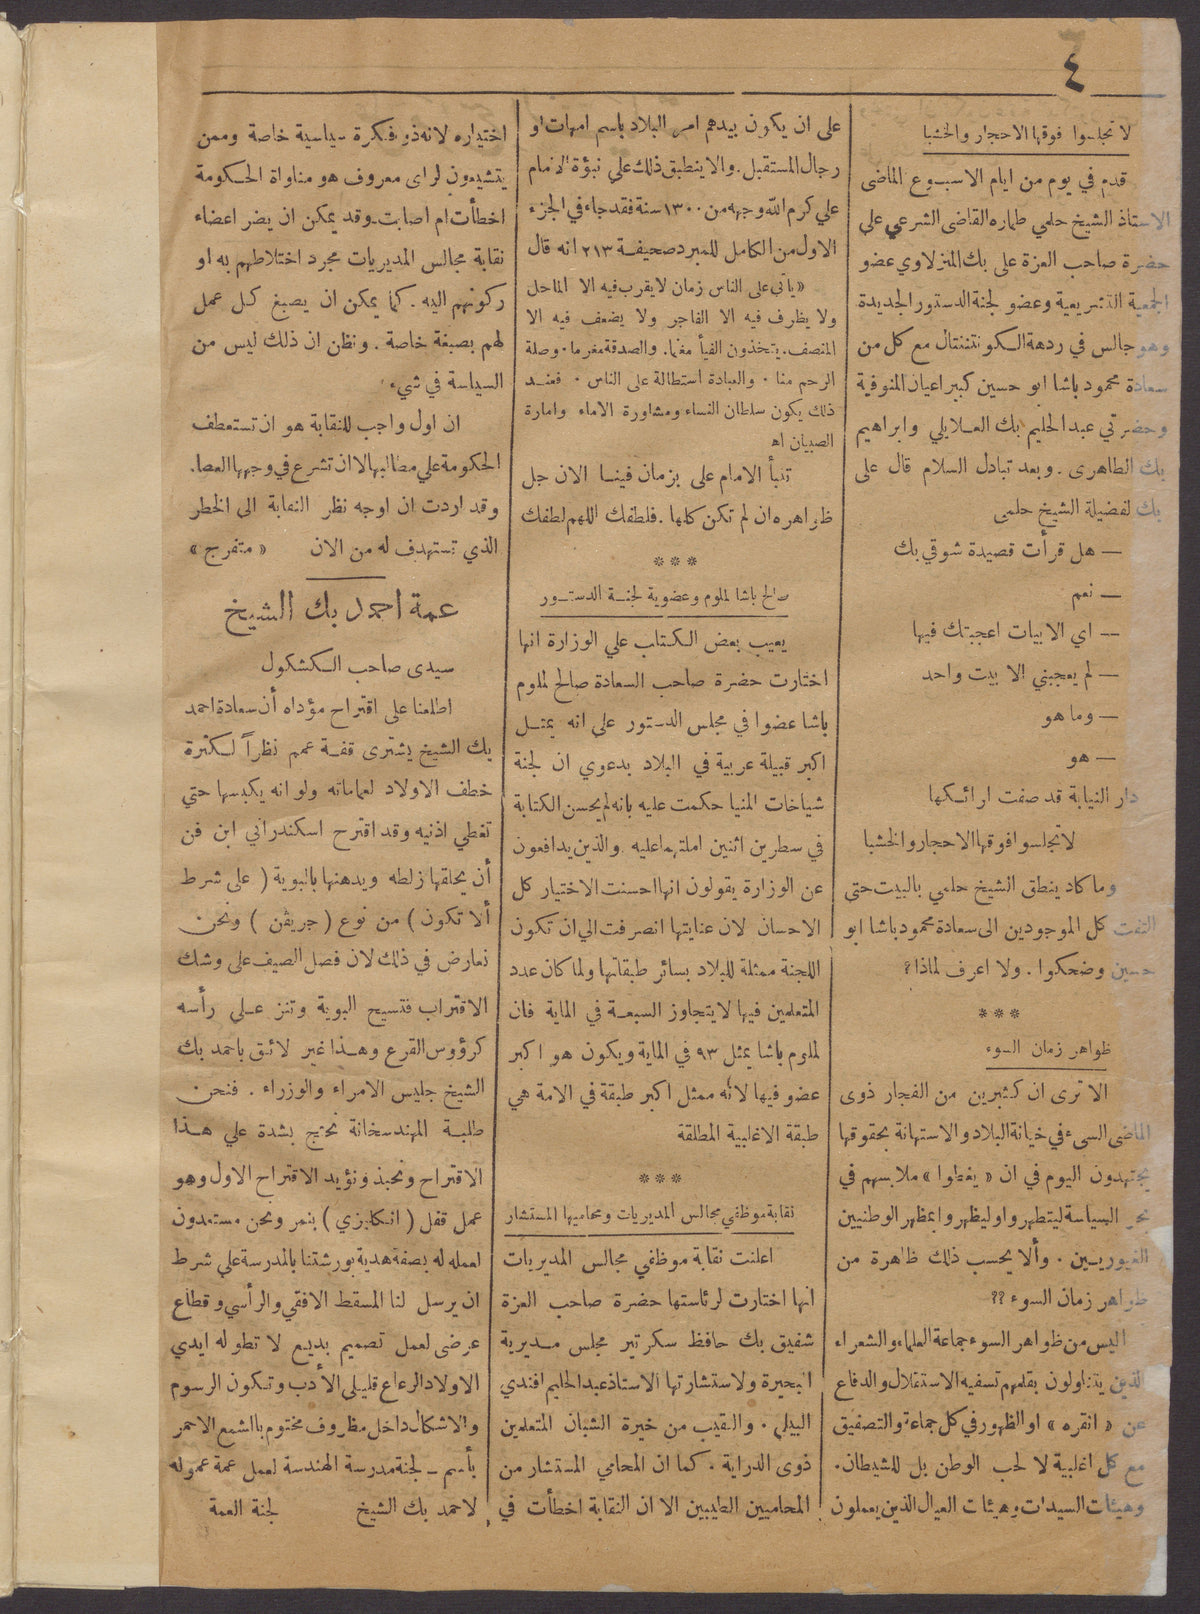 ٤
لا تجلسوا فوقها الاحجار والخشبا
قدم في يوم من ايام الاسبوع الماضى
الاستاذ الشيخ حلمي طماره القاضى الشرعي على
حضرة صاحب العزة على بك المنزلاوي عضو
الجمعية التشريعية وعضو لجنة الدستور الجديدة
وهو جالس في ردهة الكونتننتال مع كل من
سعادة محمود باشا ابو حسين كبير اعيان المنوفية
وحضرتي عبد الحليم بك العلايلي وابراهيم
بك الطاهرى . وبعد تبادل السلام قال على
بك لفضيلة الشيخ حلمى
— هل قرأت قصيدة شوقي بك
— نعم
— اي الابيات اعجبتك فيها
— لم يعجبني الا بيت واحد
— وما هو
— هو
دار النيابة قد صفت ارائكها
لا تجلسوا فوقها الاحجار والخشبا
وما كاد ينطق الشيخ حلمي بالبيت حتى
التفت كل الموجودين الى سعادة محمود باشا ابو
حسين وضحكوا . ولا اعرف لماذا ؟
***
ظواهر زمان السوء
الا ترى ان كثيرين من الفجار ذوى
الماضى السىء في خيانة البلاد والاستهانة بحقوقها
يجتهدون اليوم في ان « يغطوا » ملابسهم في
بحر السياسة ليتطهروا وليظهروا بمظهر الوطنيين
الغيوريين . وألا يحسب ذلك ظاهرة من
ظواهر زمان السوء ؟؟
اليس من ظواهر السوء جماعة العلماء والشعراء
الذين يتناولون بقلمهم تسفيه الاستقلال والدفاع
عن « انقره » او الظهور في كل جماعة والتصفيق
مع كل اغلبية لا لحب الوطن بل للشيطان .
وهيئات السيدات وهيئات العيال الذين يعملون
على ان يكون بيدهم امر البلاد باسم امهات او
رجال المستقبل . والا ينطبق ذلك علي نبؤة الامام
علي كرم الله وجهه من ١٣٠٠ سنة فقد جاء في الجزء
الاول من الكامل للمبرد صحيفة ٢١٣ انه قال
« يأتى على الناس زمان لا يقرب فيه الا الماحل
ولا يظرف فيه الا الفاجر ولا يضعف فيه الا
المنصف . يتخذون الفيأ مغنما . والصدقة مغرما . وصلة
الرحم منا . والعبادة استطالة على الناس . فعند
ذلك يكون سلطان النساء ومشاورة الاماء وامارة
الصبيان اه
تنبأ الامام على بزمان فينا الان جل
ظواهره ان لم تكن كلها . فلطفك اللهم لطفك
***
صالح باشا لملوم وعضوية لجنة الدستور
يعيب بعض الكتاب علي الوزارة انها
اختارت حضرة صاحب السعادة صالح لملوم
باشا عضوا في مجلس الدستور على انه يمثل
اكبر قبيلة عربية في البلاد بدعوي ان لجنة
شياخات المنيا حكمت عليه بانه لم يحسن الكتابة
في سطرين اثنين املتهما عليه . والذين يدافعون
عن الوزارة يقولون انها احسنت الاختيار كل
الاحسان لان عنايتها انصرفت الي ان تكون
اللجنة ممثلة للبلاد بسائر طبقاتها ولما كان عدد
المتعلمين فيها لا يتجاوز السبعة في الماية فان
لملوم باشا يمثل ٩٣ في الماية ويكون هو اكبر
عضو فيها لانه ممثل اكبر طبقة في الامة هي
طبقة الاغلبية المطلقة
***
نقابة موظفي مجالس المديريات ومحاميها المستشار
اعلنت نقابة موظفي مجالس المديريات
انها اختارت لرئاستها حضرة صاحب العزة
شفيق بك حافظ سكرتير مجلس مديرية
البحيرة ولاستشارتها الاستاذ عبد الحليم افندي
البيلى . والنقيب من خيرة الشبان المتعلمين
ذوى الدراية . كما ان المحامي المستشار من
المحاميين الطيبين الا ان النقابة اخطأت في
اختياره لانه ذو فكرة سياسية خاصة وممن
يتشيعون لراى معروف هو مناواة الحكومة
اخطأت ام اصابت . وقد يمكن ان يضر اعضاء
نقابة مجالس المديريات مجرد اختلاطهم به او
ركونهم اليه . كما يمكن ان يصبغ كل عمل
لهم بصبغة خاصة . ونظن ان ذلك ليس من
السياسة في شيء
ان اول واجب للنقابة هو ان تستعطف
الحكومة علي مطالبها لا ان تشرع في وجهها العصا .
وقد اردت ان اوجه نظر النقابة الى الخطر
الذي تستهدف له من الان « متفرج »
عمة احمد بك الشيخ
سيدى صاحب الكشكول
اطلعنا على اقتراح مؤداه أن سعادة احمد
بك الشيخ يشترى قفة عمم نظراً لكثرة
خطف الاولاد لعماماته ولو انه يكبسها حتي
تغطي اذنيه وقد اقترح اسكندراني ابن فن
أن يحلقها زلطه ويدهنها بالبوية ( على شرط
ألا تكون ) من نوع ( جريفن ) ونحن
نعارض في ذلك لان فصل الصيف على وشك
الاقتراب فتسيح البوية وتنز على رأسه
كرؤوس القرع وهذا غير لائق باحمد بك
الشيخ جليس الامراء والوزراء . فنحن
طلبة المهندسخانة نحتج بشدة علي هذا
الاقتراح ونحبذ ونؤيد الاقتراح الاول وهو
عمل قفل ( انكليزي ) بنمر ونحن مستعدون
لعمله له بصفة هدية بورشتنا بالمدرسة علي شرط
ان يرسل لنا المسقط الافقي والرأسي وقطاع
عرضى لعمل تصميم بديع لا تطوله ايدي
الاولاد الرعاع قليلى الأدب وتكون الرسوم
والاشكال داخل مظروف مختوم بالشمع الاحمر
بأسم — لجنة مدرسة الهندسة لعمل عمة عموله
لاحمد بك الشيخ لجنة العمة